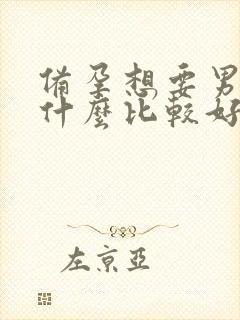 備孕想要男
什麼比較好
左京亞